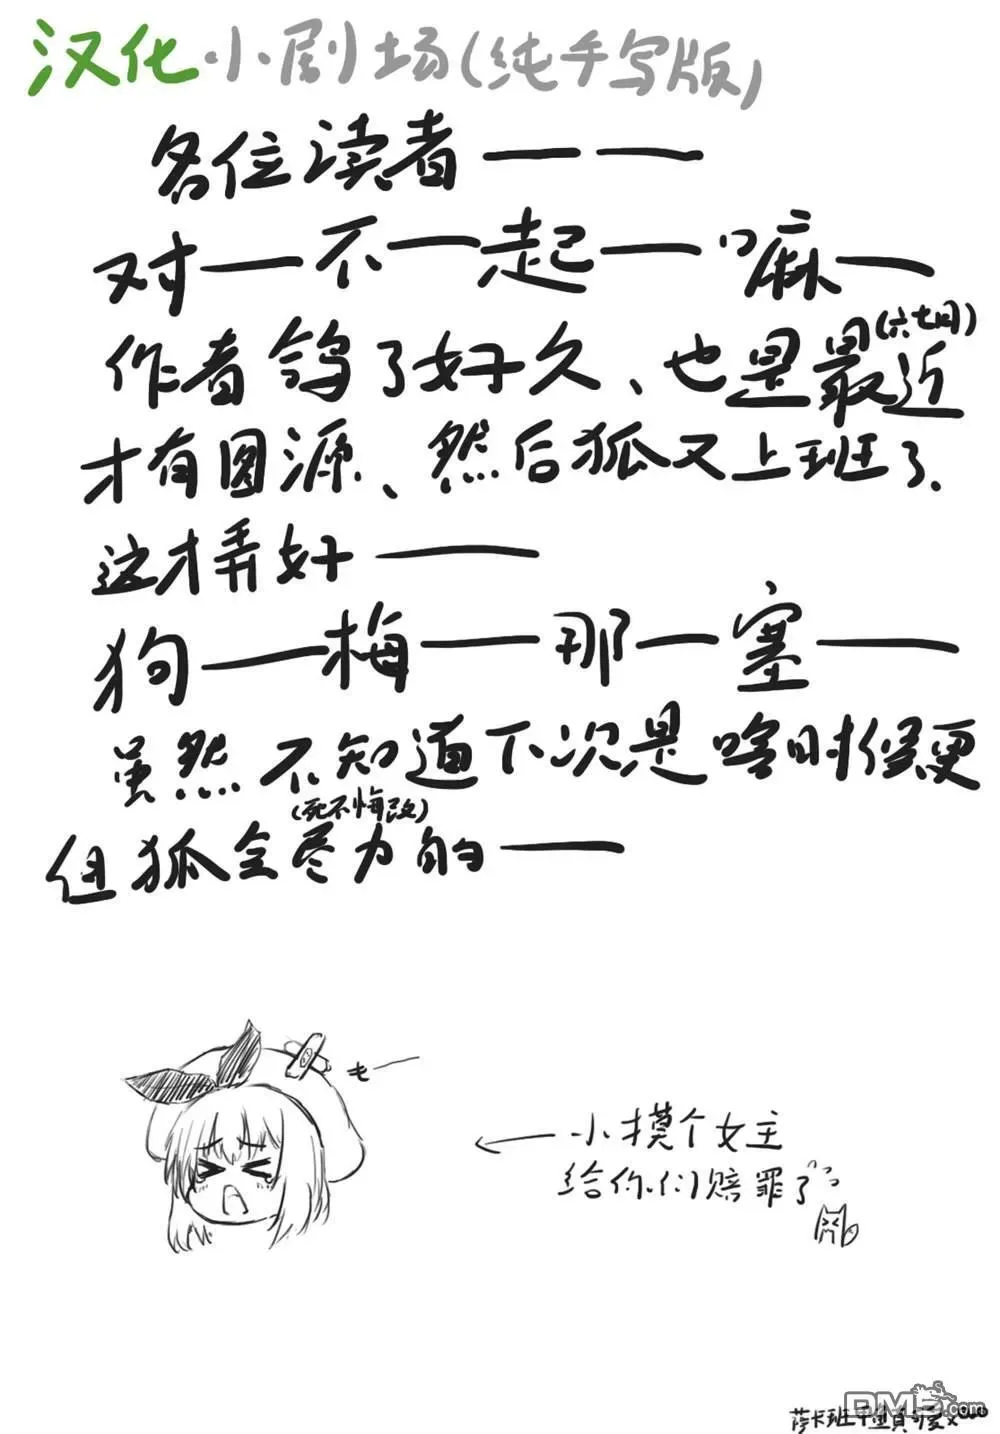 汉化小剧场(纯手写版)
各位读者——
对—不—起—嘛—
作者鸽了好久、也是最近(六七月)
才有图源、然后狐又上班了.
这才弄好——
狗—梅—那—塞—
虽然不知道下次是啥时候更
但狐会尽力的——
(死不悔改)
←小摸个女主
给你们赔罪了
DM5.com